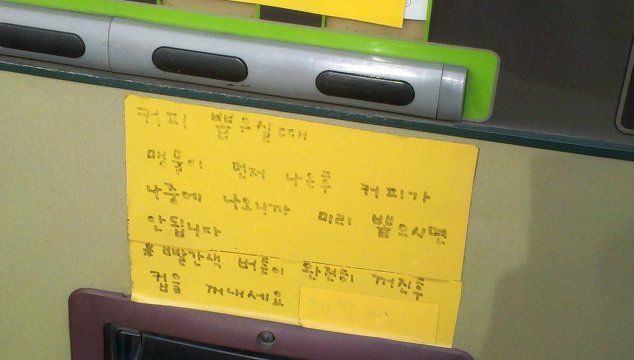 커피 뽑으실때
맹물이 먼저 나온후 커피가
나중에 나오니까 미리 뽑으시면
안됩니다
* 빨간색 버튼이 완전히 꺼진후
컵을 꺼내세요